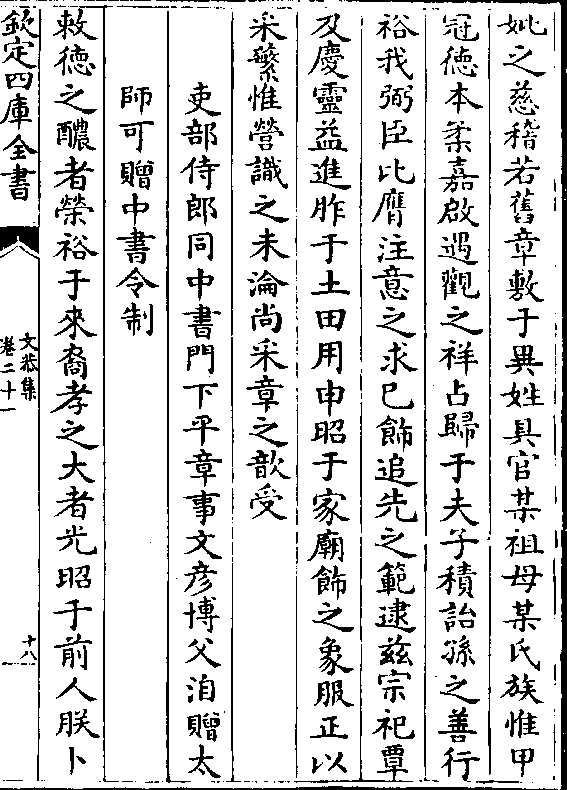 妣之慈稽若舊章敷于異姓具官某祖母某氏族惟甲
冠德本柔嘉啟遇觀之祥占歸于夫子積詒孫之善行
裕我弼臣比膺注意之求已飾追先之範逮兹宗祀覃
及慶靈益進胙于土田用申昭于家廟飾之象服正以
采蘩惟營識之未淪尚采章之歆受
吏部侍郎同中書門下平章事文彦博父洎贈太
師可贈中書令制
敕德之醲者榮裕于來裔孝之大者光昭于前人朕卜
欽定四庫全書
文恭集
卷二十一
十八